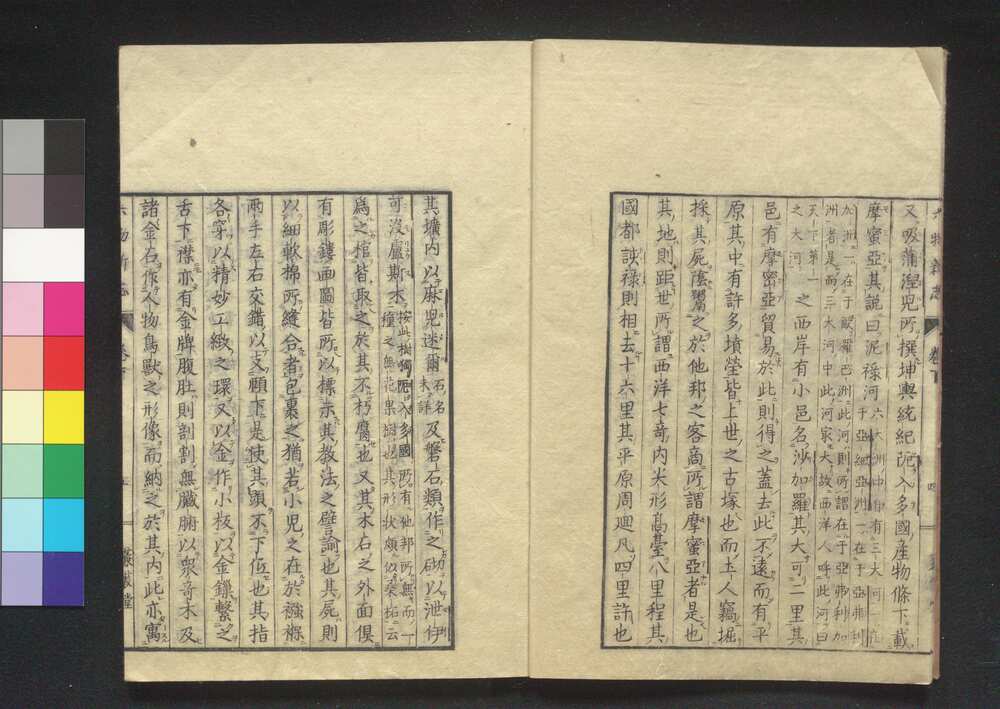 又吸蒲涅児所撰坤輿統紀阨入多國産物條下載
摩蜜亞其説曰泥祿河六大洲中有三大河一在
加洲一在于歐羅巴洲此河則所謂在于亞弗利加
洲者是而三大河中此河冣大故西洋人呼此河曰
天下第一
之大河之西岸有小邑名沙加羅其大可二里其
邑有摩密亞貿易於此則得之蓋去此不遠而有平
原其中有許多墳塋皆上世之古塚也而土人竊堀
採其屍陰鬻之於他邦之客商所謂摩蜜亞者是也
其地則距世所謂西洋七奇内尖形高臺八里程其
國都泆祿則相去十六里其平原周迴凡四里許也
其壙内以麻児迷爾石名未詳及磐石類作之砌以泄伊
可没盧斯木按此樹阨入多國所有他邦所無而一種之無花果樹也其形状頗似桑柘云
爲之棺皆取之於其不朽腐也又其木石之外面俱
有彫鏤画圖皆所以標示其教法之譬諭也其屍則
以細軟棉所縫合者包裹之猶若小児之在於襁褓
兩手左右交錯以支頤下是使其頭不下低也其指
各穿以精妙工緻之環又以金作小板以金鏁繋之
舌下襟亦有金牌腹肚則割割無臓腑以衆奇木及
諸金石作人物鳥獸之形像而納之於其内此亦寓